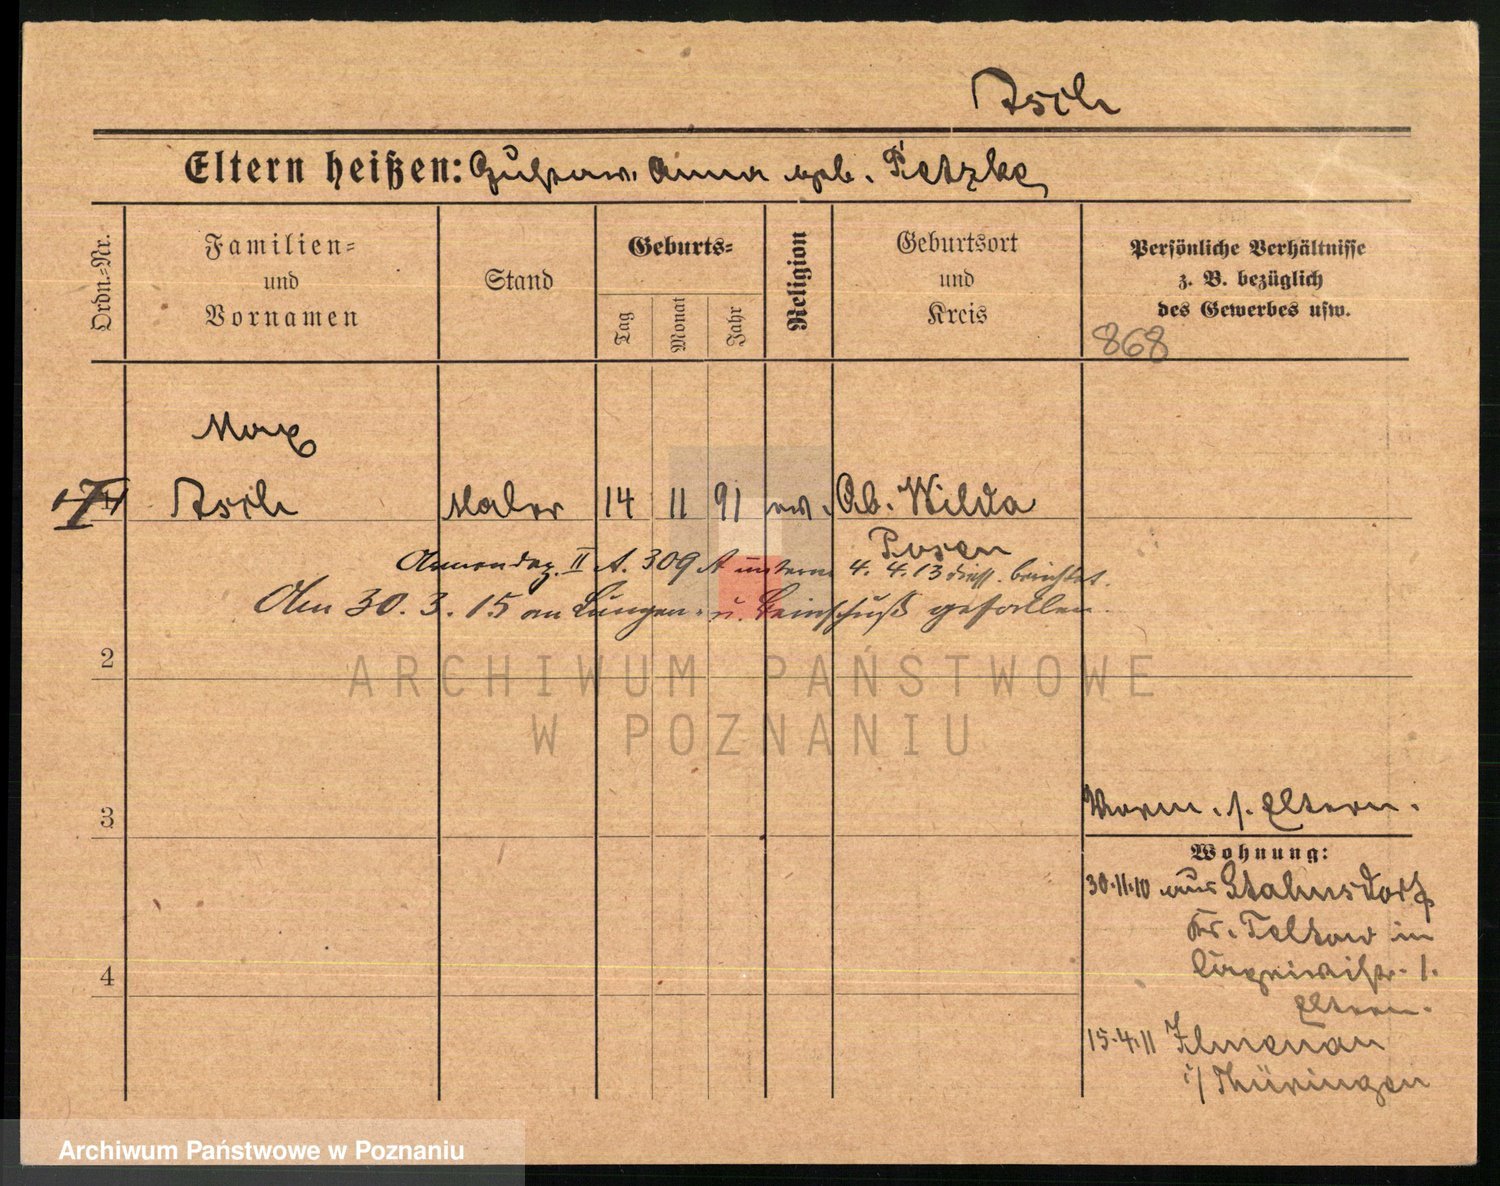 Asch
Eltern heißen: Gustav. Anna geb. Pietzke
Ordn.-Nr.
Familien-
und
Vornamen
Stand
Geburts-
Tag
Monat
Jahr
Religion
Geburtsort
und
Kreis
Persönliche Verhältnisse
z. B. bezüglich
des Gewerbes usw.
868
Max
1 Asch Maler 14 11 91 ev. Ob. Wilda
Posen
II A. 309 A unterm 4. 4. 13 berichtet.
Am 30. 3. 15 an Lungen- u. Beinschuß gefallen.
2
ARCHIWUM PAŃSTWOWE
W POZNANIU
3
Vorm. s. Eltern.
Wohnung:
30.11.10 aus Stahnsdorf
Kr. Teltow in
s.
4
Eltern.
15.4.11 Ilmenau
i/ Thüringen
Archiwum Państwowe w Poznaniu